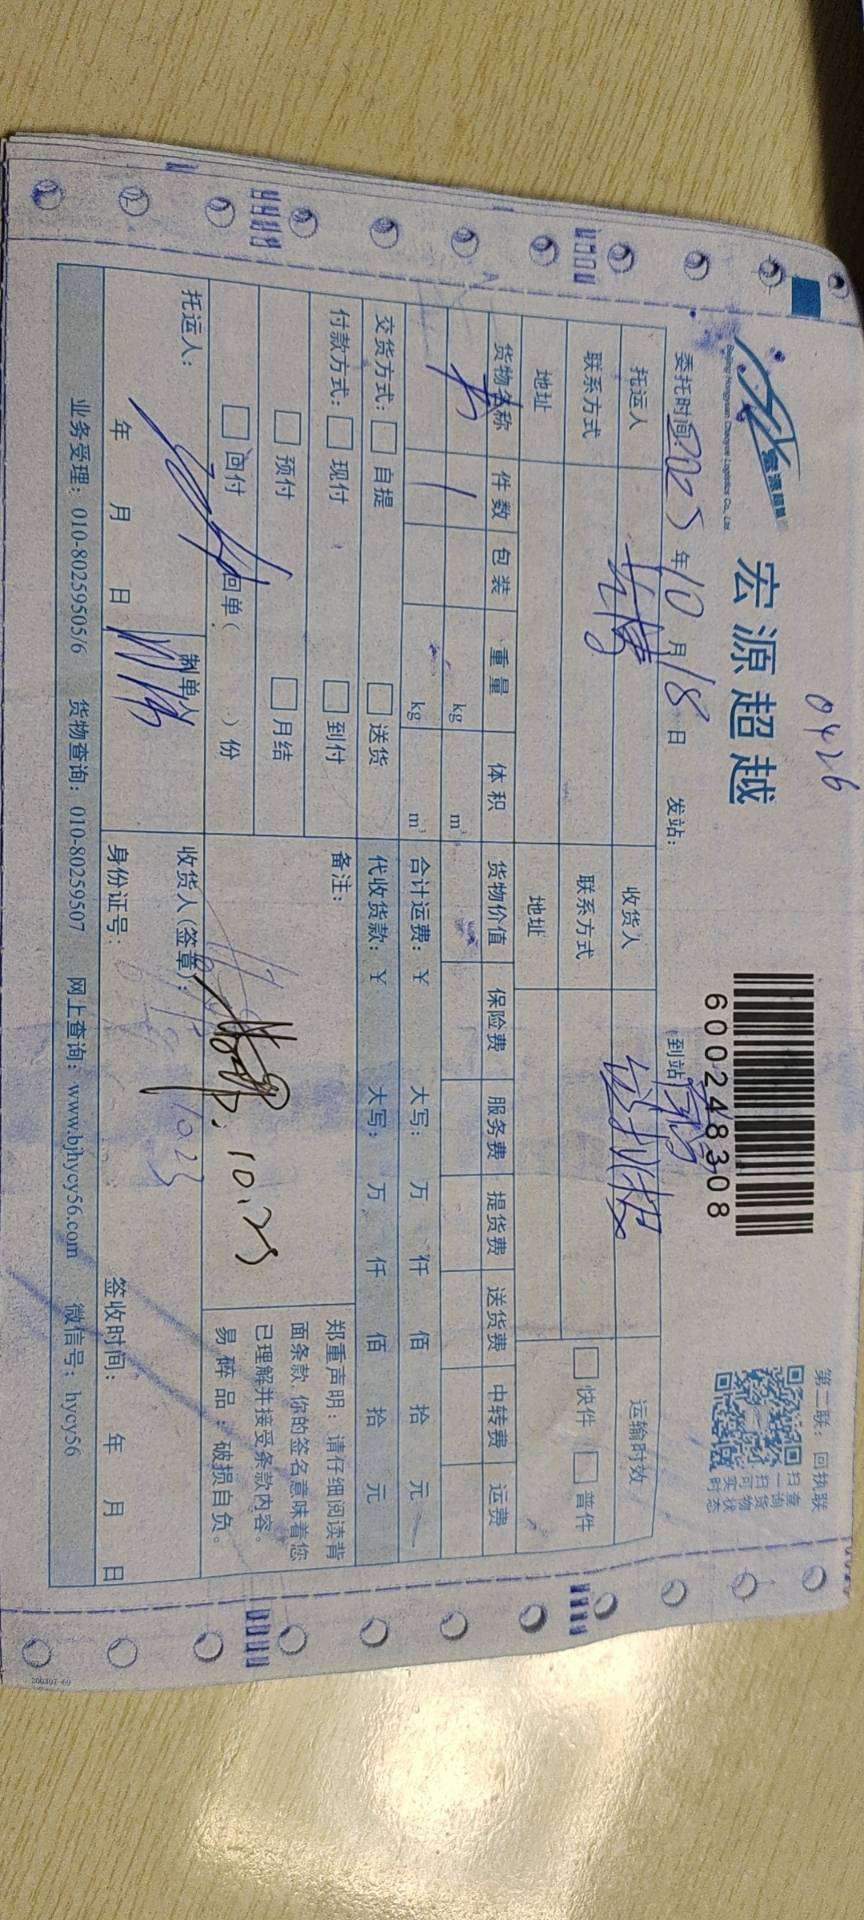 0426
宏源超越
Beijing Hongyuan Chaoyue Logistics Co., Ltd.
600248308
第二联：回执联
扫一扫可查询货物实时状态
委托时间2025年10月18日 发站： 到站
托运人 收货人 运输时效
联系方式 联系方式 快件 普件
地址 地址
货物名称 件数 包装 重量 体积 货物价值 保险费 服务费 提货费 送货费 中转费 运费
1 kg m³
kg m³ 合计运费：¥ 大写： 万 仟 佰 拾 元
交货方式： 自提 送货 代收货款：¥ 大写： 万 仟 佰 拾 元
付款方式： 现付 到付 备注：
预付 月结
回付 回单( )份
10.23
郑重声明：请仔细阅读背
面条款,你的签名意味着您
已理解并接受条款内容。
易碎品：破损自负。
托运人： 制单人 收货人(签章)：
10.23
年 月 日 身份证号： 签收时间： 年 月 日
业务受理：010-80259505/6 货物查询：010-80259507 网上查询：www.bjhycy56.com 微信号：hycy56